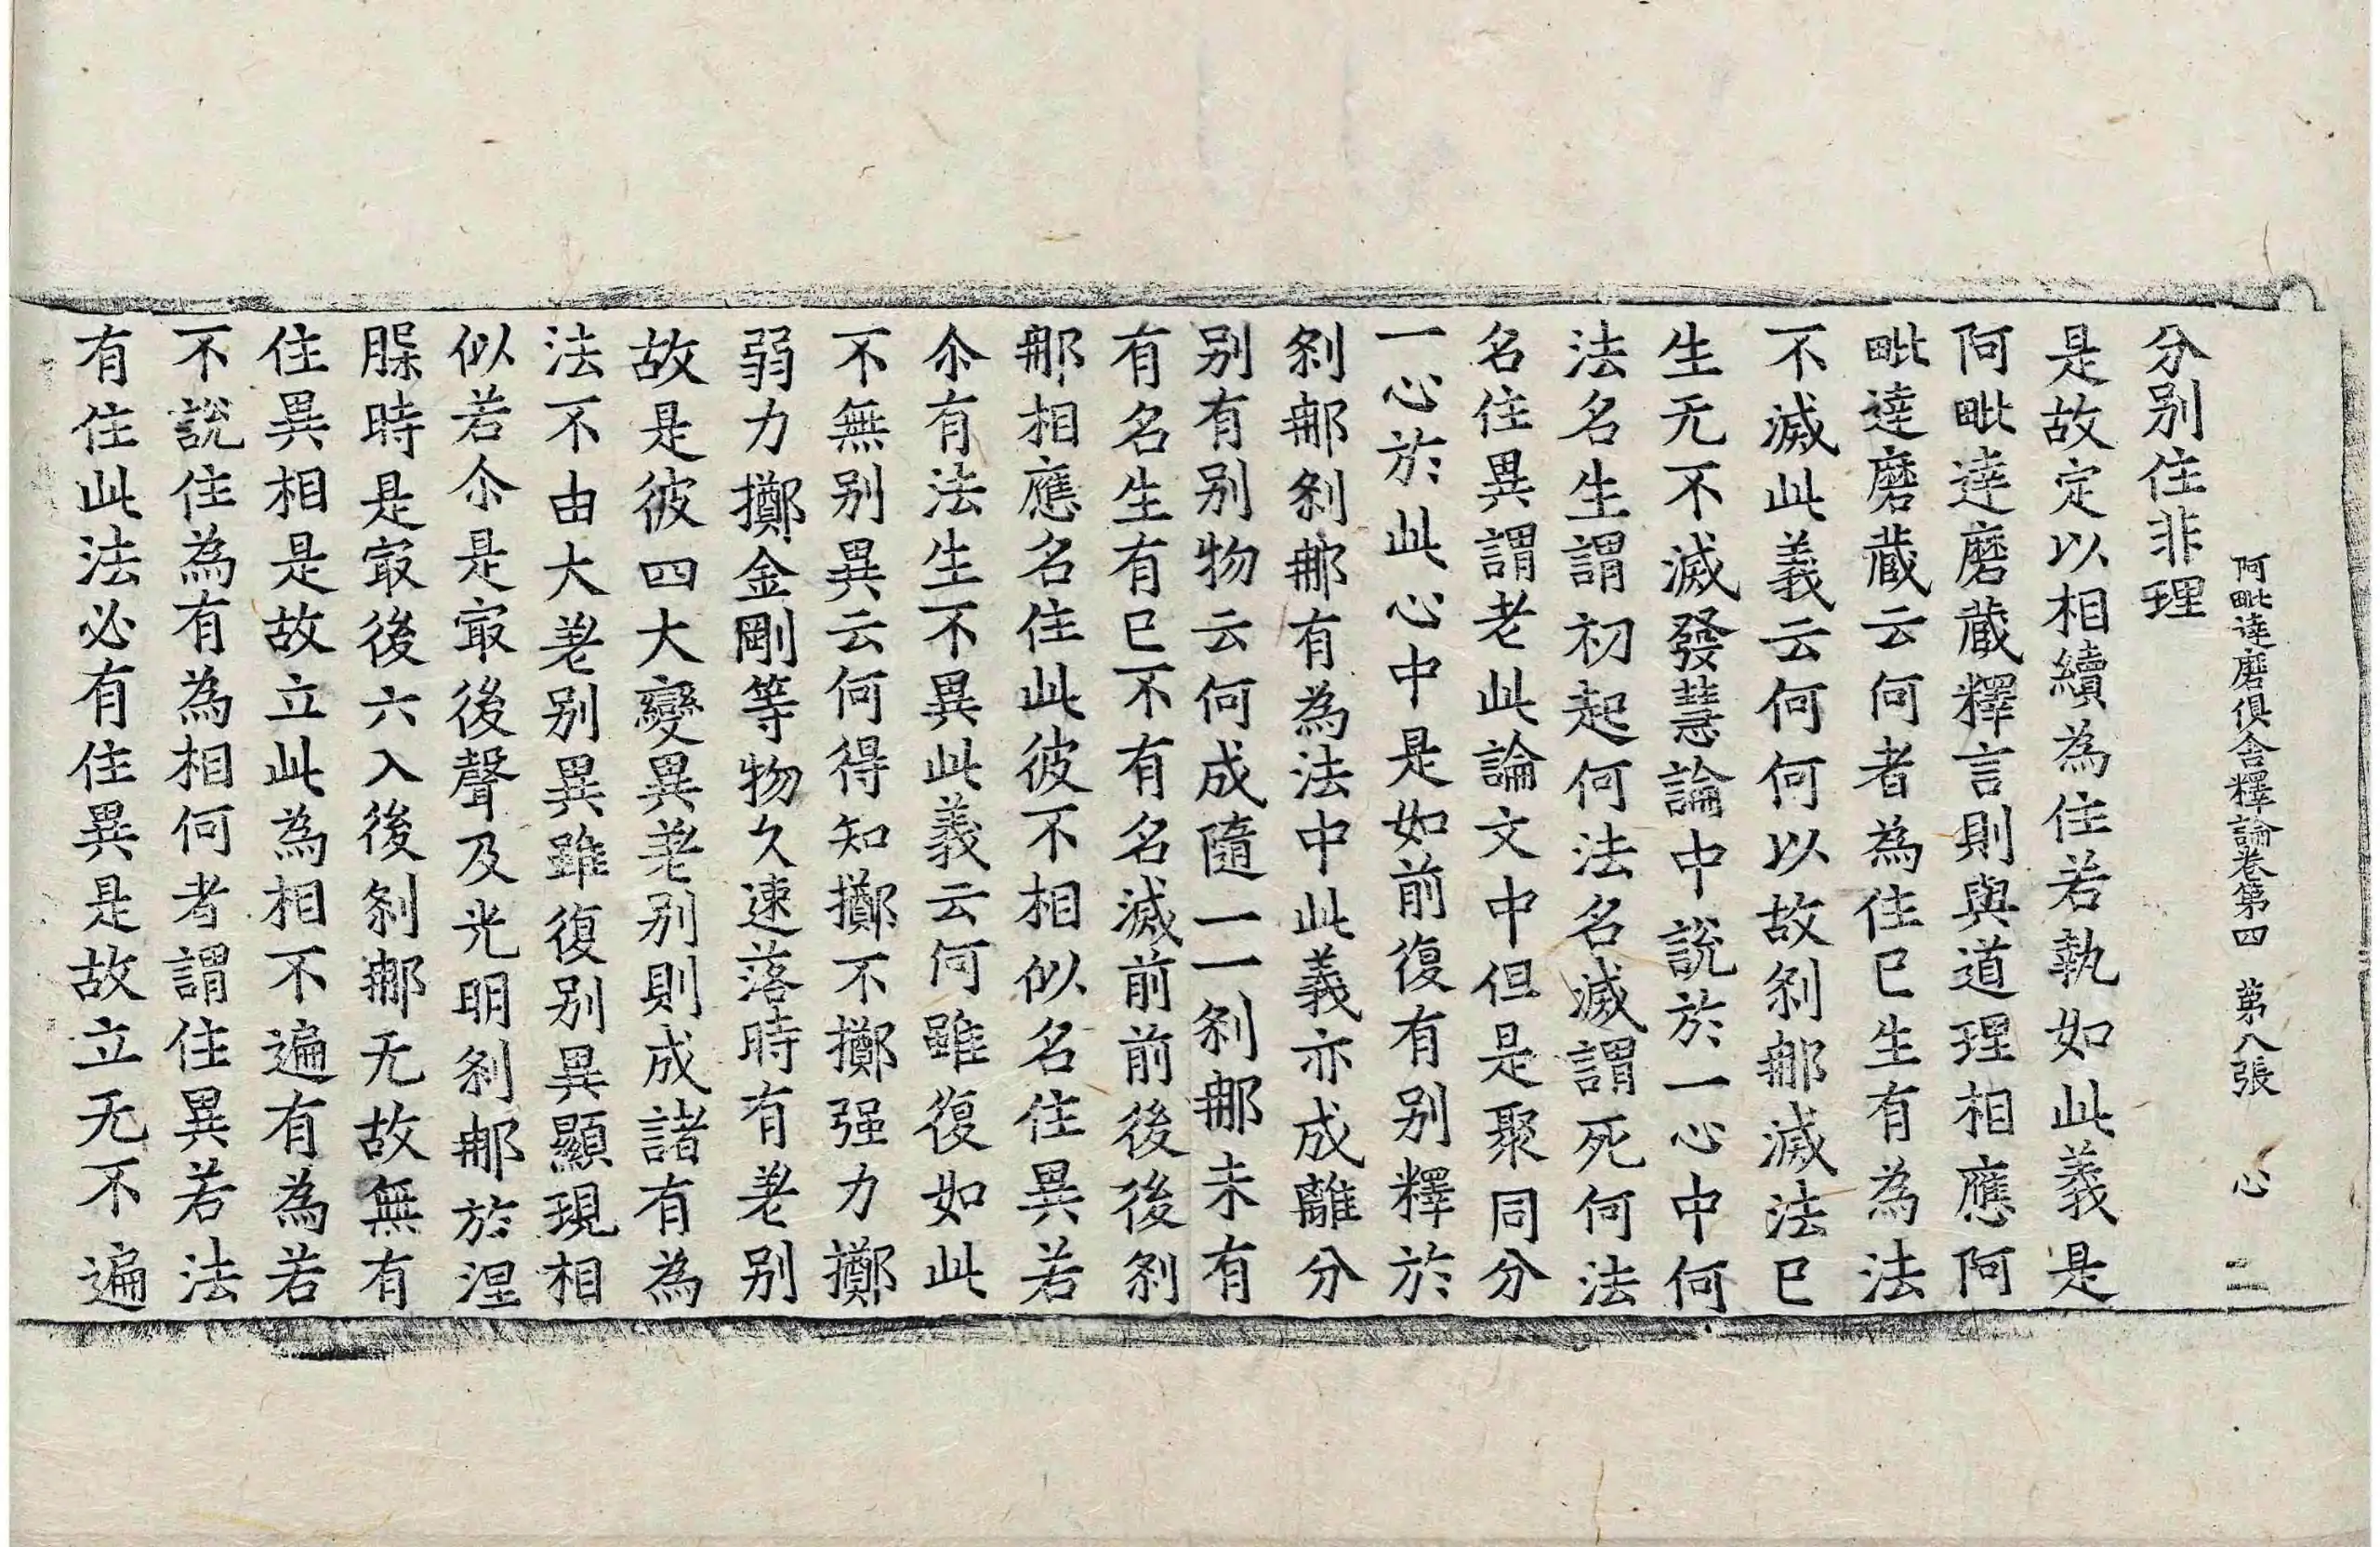 阿毗達磨俱舍釋論卷第四　第八張　心　二
分別住非理
是故定以相續為住若執如此義是
阿毗達磨藏釋言則與道理相應阿
毗達磨藏云何者為住已生有為法
不滅此義云何何以故剎那滅法已
生无不滅發慧論中說於一心中何
法名生謂初起何法名滅謂死何法
名住異謂老此論文中但是聚同分
一心於此心中是如前復有別釋於
剎那剎那有為法中此義亦成離分
別有別物云何成隨一一剎那未有
有名生有已不有名滅前前後後剎
那相應名住此彼不相似名住異若
尒有法生不異此義云何雖復如此
不無別異云何得知擲不擲强力擲
弱力擲金剛等物久速落時有差別
故是彼四大變異差別則成諸有為
法不由大差別異雖復別異顯現相
似若尒是㝡後聲及光明剎那於涅
槃時是㝡後六入後剎那无故無有
住異相是故立此為相不遍有為若
不說住為有為相何者謂住異若法
有住此法必有住異是故立无不遍